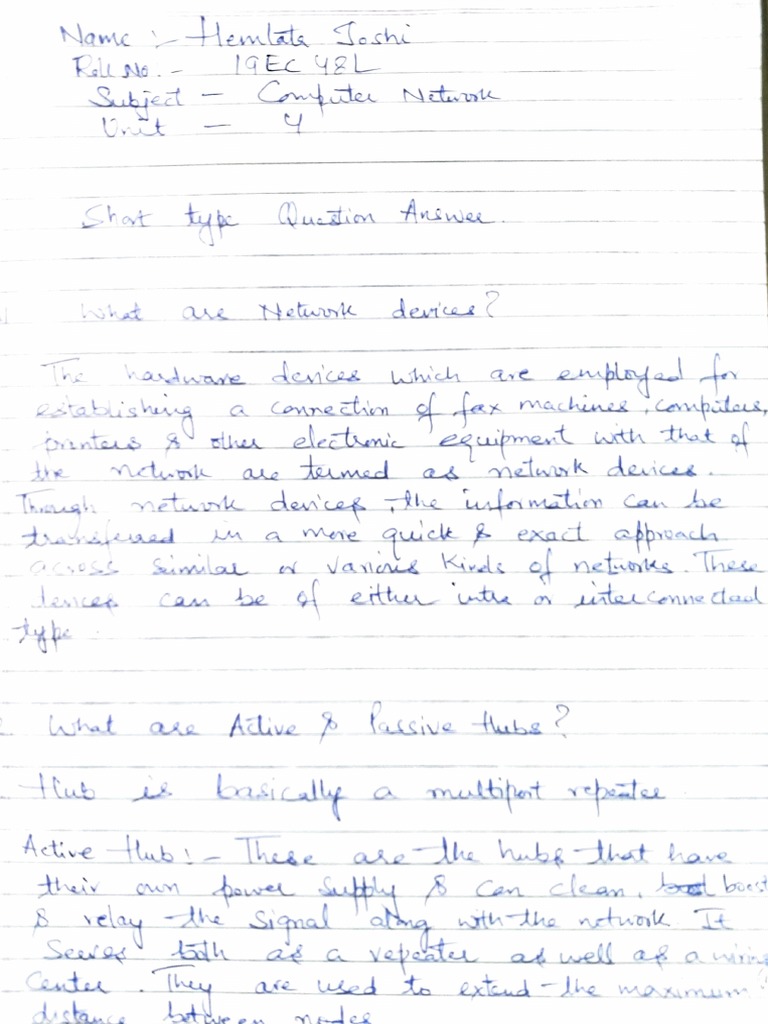 Name :- Hemlata Joshi
Roll No. - 19EC48L
Subject - Computer Network
Unit - 4
Short type Question Answer.
What are Network devices?
The hardware devices which are employed for
establishing a connection of fax machines, computers,
printers & other electronic equipment with that of
the network are termed as network devices.
Through network devices, the information can be
transferred in a more quick & exact approach
across similar or various kinds of networks. These
devices can be of either intra or interconnected
type
What are Active & Passive Hubs?
Hub is basically a multiport repeater
Active Hub:- These are the hubs that have
their own power supply & can clean, boost
& relay the signal along with the network. It
serves both as a repeater as well as a wiring
center. They are used to extend the maximum
distance between nodes